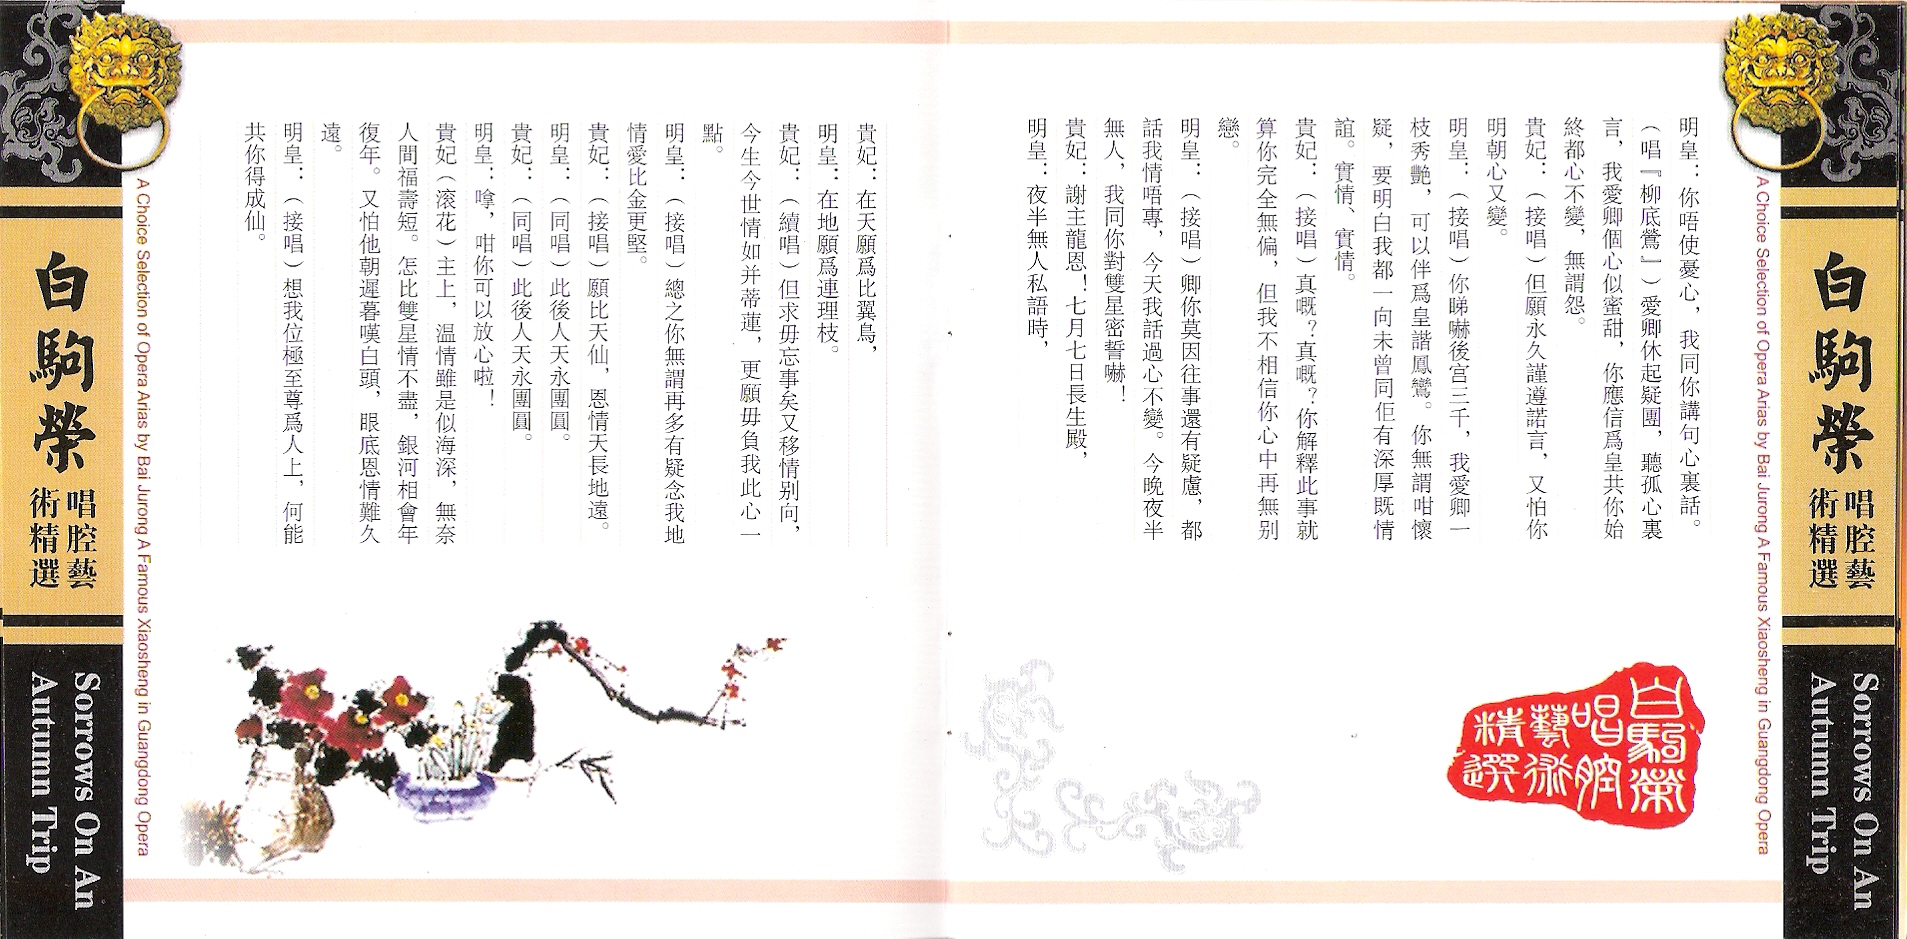 白駒榮
唱腔藝
術精選
Sorrows On An
Autumn Trip
A Choice Selection of Opera Arias by Bai Jurong A Famous Xiaosheng in Guangdong Opera
明皇：你唔使憂心，我同你講句心裏話。
（唱『柳底鶯』）愛卿休起疑團，聽孤心裏
言，我愛卿個心似蜜甜，你應信爲皇共你始
終都心不變，無謂怨。
貴妃：（接唱）但願永久謹遵諾言，又怕你
明朝心又變。
明皇：（接唱）你睇嚇後宫三千，我愛卿一
枝秀艷，可以伴爲皇諧鳳鸞。你無謂咁懷
疑，要明白我都一向未曾同佢有深厚既情
誼。實情、實情。
貴妃：（接唱）真嘅？真嘅？你解釋此事就
算你完全無偏，但我不相信你心中再無别
戀。
明皇：（接唱）卿你莫因往事還有疑慮，都
話我情唔專，今天我話過心不變。今晚夜半
無人，我同你對雙星密誓嚇！
貴妃：謝主龍恩！七月七日長生殿，
明皇：夜半無人私語時，
白駒榮
唱腔
藝術
精選
貴妃：在天願爲比翼鳥，
明皇：在地願爲連理枝。
貴妃：（續唱）但求毋忘事矣又移情别向，
今生今世情如并蒂蓮，更願毋負我此心一
點。
明皇：（接唱）總之你無謂再多有疑念我地
情愛比金更堅。
貴妃：（接唱）願比天仙，恩情天長地遠。
明皇：（同唱）此後人天永團圓。
貴妃：（同唱）此後人天永團圓。
明皇：嗱，咁你可以放心啦！
貴妃（滚花）主上，温情雖是似海深，無奈
人間福壽短。怎比雙星情不盡，銀河相會年
復年。又怕他朝遲暮嘆白頭，眼底恩情難久
遠。
明皇：（接唱）想我位極至尊爲人上，何能
共你得成仙。
A Choice Selection of Opera Arias by Bai Jurong A Famous Xiaosheng in Guangdong Opera
白駒榮
唱腔藝
術精選
Sorrows On An
Autumn Trip